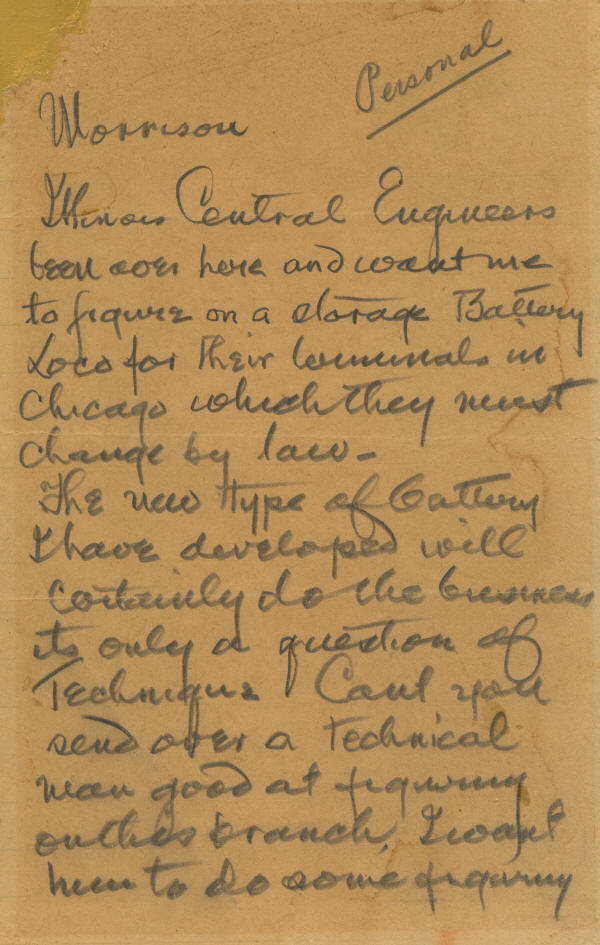 Personal
Morrison
Illinois Central Engineers
been over here and want me
to figure on a storage Battery
Loco for their terminals in
Chicago which they must
change by law-
The new type of battery
I have developed will
certainly do the business
its only a question of
Technique Cant you
send over a technical
man good at figuring
on this branch, I want
him to do some figuring